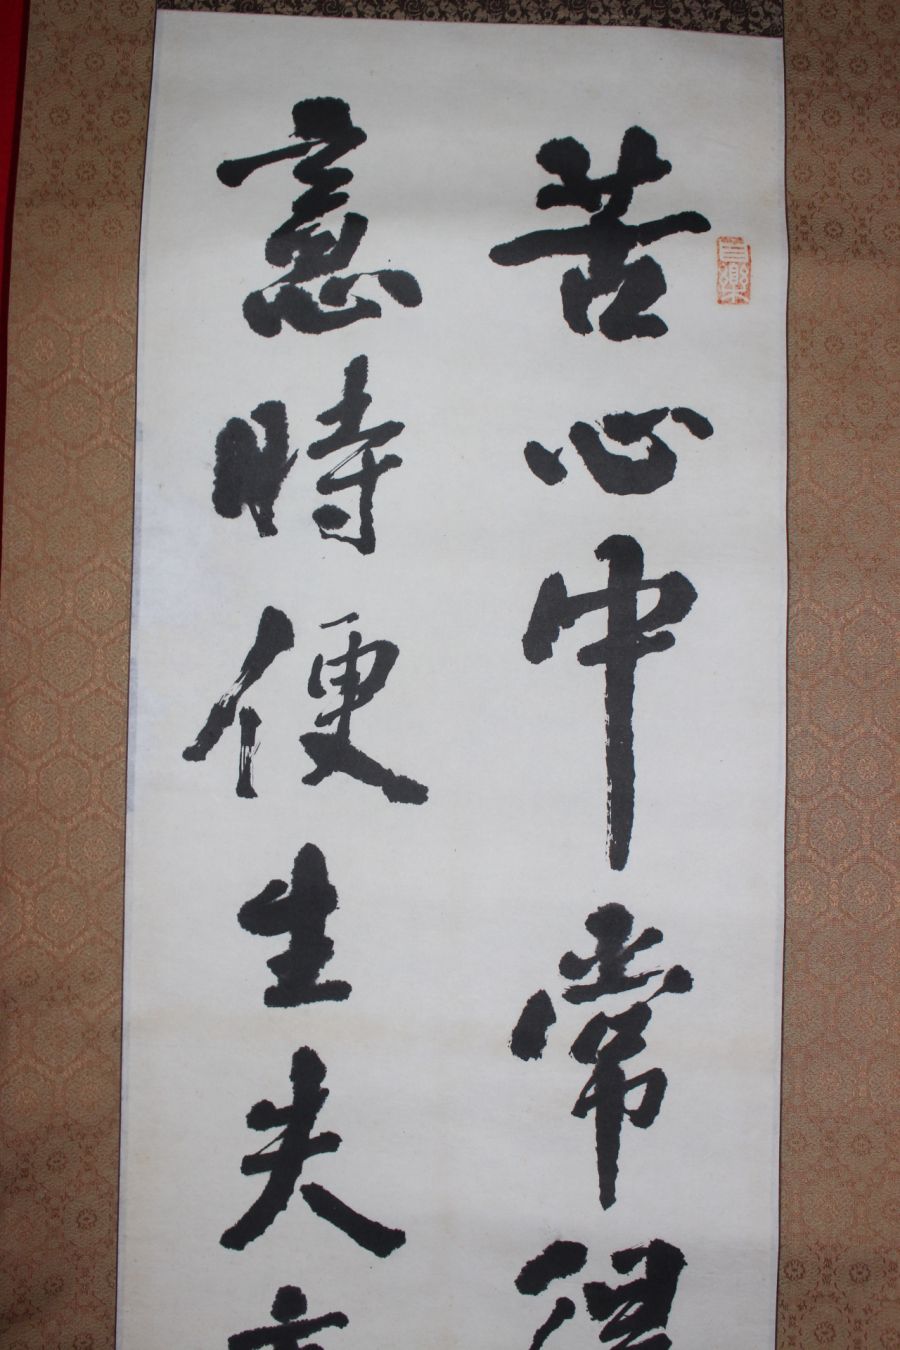 苦心中常得
意時便生失
自樂